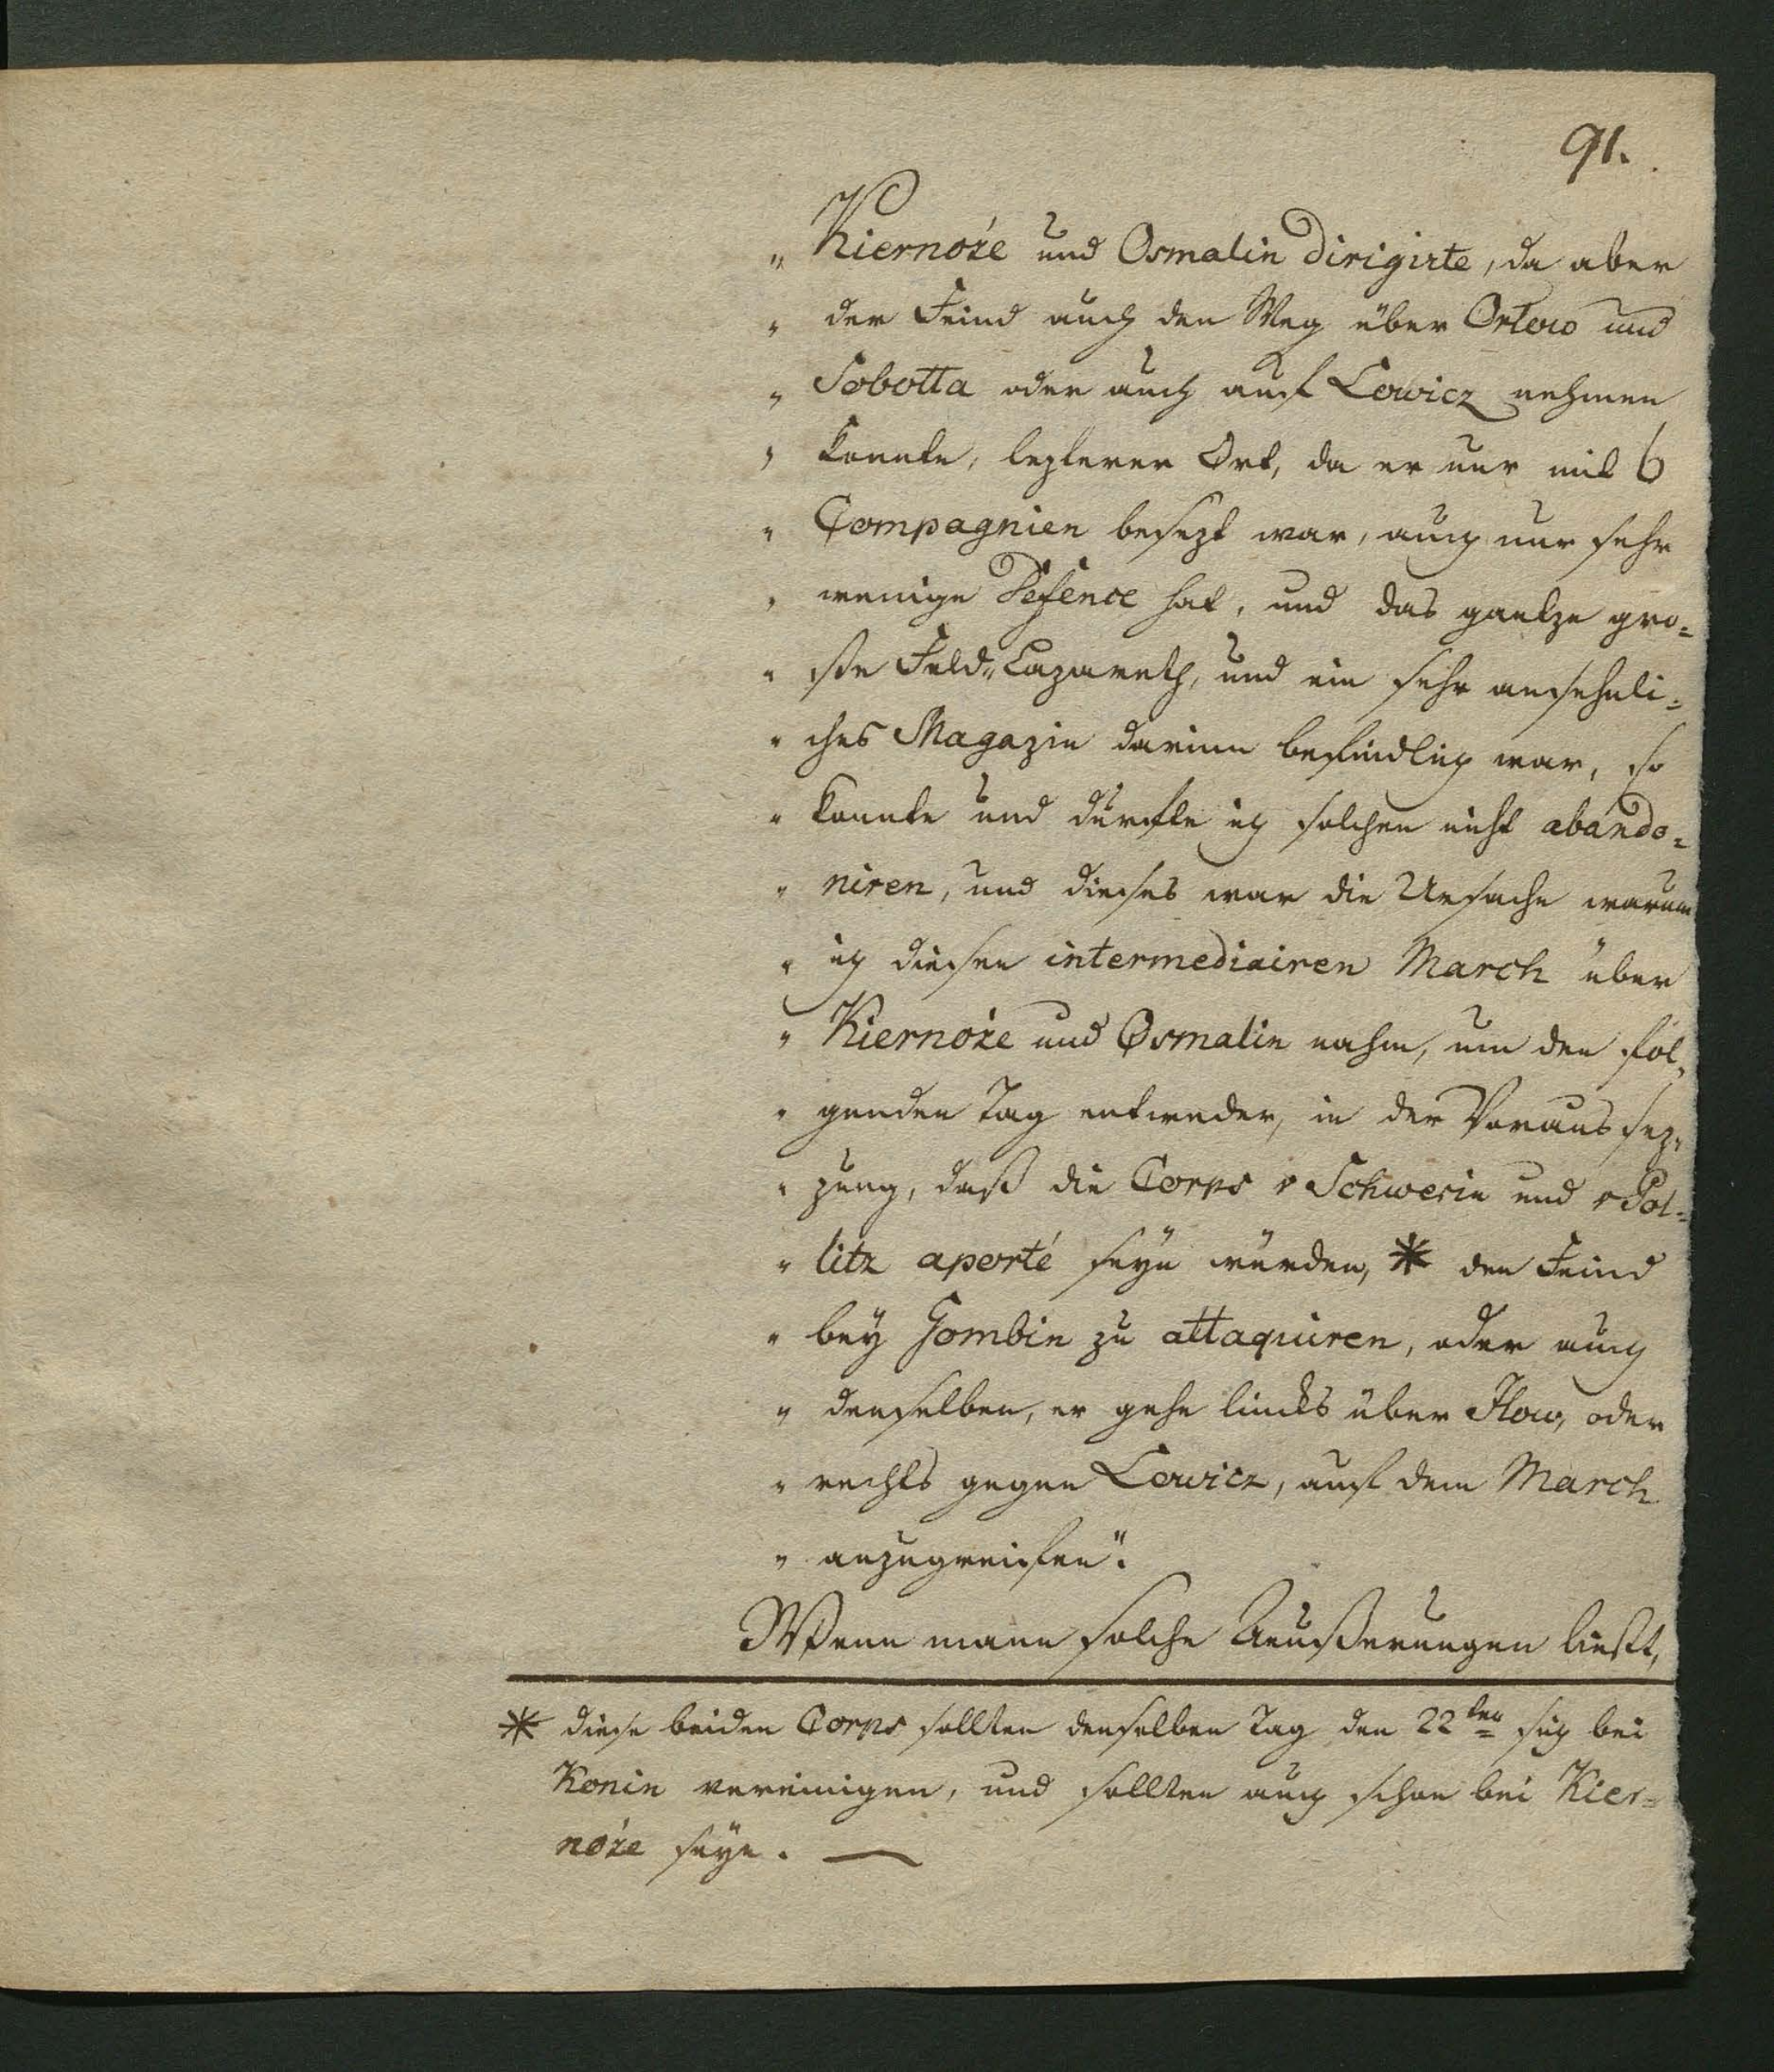 91.
„ Kiernoże und Osmalin dirigirte, da aber
„ der Feind auch den Weg über Orłow und
„ Sobotta oder auch auf Lowicz nehmen
„ konnte, lezterer Ort, da er nur mit 6
„ Compagnien besezt war, auch nur sehr
„ wenige Defence hat, und das gantze gro=
„ ße Feld„Lazareth, und ein sehr ansehnli=
„ ches Magazin darinn befindlich war, so
„ konnte und durfte ich solchen nicht abando=
„ niren, und dieses war die Ursache warum
„ ich diesen intermediairen March über
„ Kiernoże und Osmalin nahm, um den fol„
„ genden Tag entweder, in der Voraussez„
„ zung, daß die Corps v Schwerin und v Pol=
„ litz aporté seyn würden, * den Feind
„ bey Gombin zu attaquiren, oder auch
„ denselben, er gehe lincks über Ilow, oder
„ rechts gegen Lowicz, auf dem March
„ anzugreifen“.
Wenn mann solche Aeußerungen ließt,
* diese beiden Corps sollten denselben Tag den 22ten sich bei
Konin vereinigen, und sollten auch schon bei Kier=
noże seyn. —